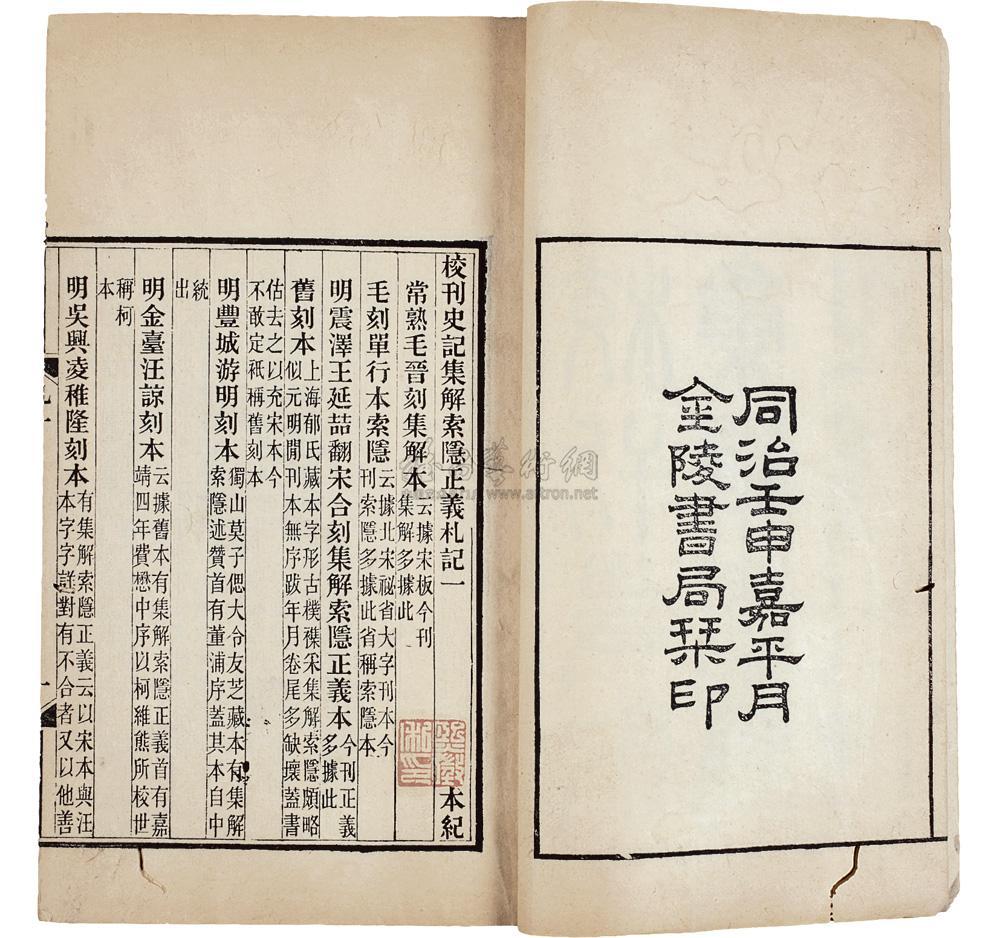 同治壬申嘉平月
金陵書局栞印
校刊史記集解索隱正義札記一 本紀
常熟毛晉刻集解本 云據宋板今刊
集解多據此
毛刻單行本索隱 云據北宋祕省大字刊本今
刊索隱多據此省稱索隱本
明震澤王延喆翻宋合刻集解索隱正義本 今刊正義
多據此
舊刻本 上海郁氏藏本字形古樸襍采集解索隱頗略
似元明閒刊本無序跋年月卷尾多缺壞蓋書
估去之以充宋本今
不敢定祇稱舊刻本
明豐城游明刻本 獨山莫子偲大令友芝藏本有集解
索隱述贊首有董浦序蓋其本自中
統
出
明金臺汪諒刻本 云據舊本有集解索隱正義首有嘉
靖四年費懋中序以柯維熊所校世
稱柯
本
明吳興凌稚隆刻本 有集解索隱正義云以宋本與汪
本字字讎對有不合者又以他善